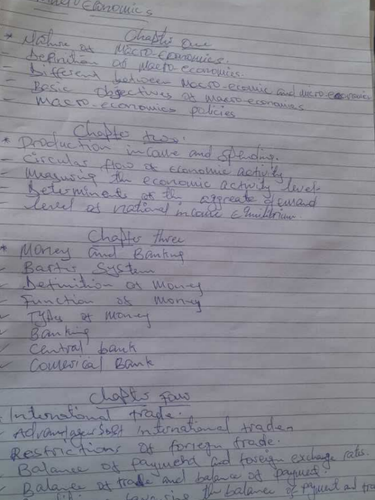 economics
Chapter one
* Nature of Macro-economics.
- Definition of Macro-economics.
- Different between Macro-economic and micro-economics
- Basic objectives of macro-economics
- Macro-economics policies
Chapter two.
* Production income and spending.
- Circular flow of economic activity
- Measuring the economic activity level
- Determinants of the aggregate demand
level of national income equilibrium
Chapter three
* Money and Banking
- Barter System
- Definition of Money
- Function of Money
- Types of Money
- Banking
- Central bank
- Comerical Bank
Chapter Four
International trade.
- International trade
Restrictions of foreign trade.
- Balance of payment and foreign exchange rates.
- Balance of trade and balance of payment.
the balance of payment and trade